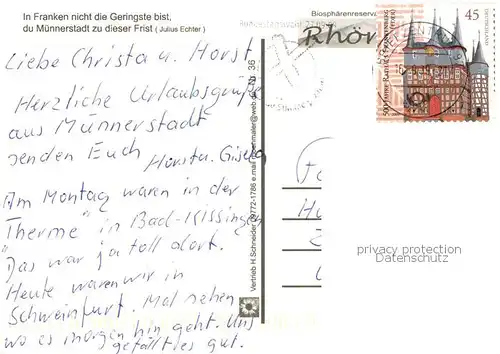 In Franken nicht die Geringste bist,
du Münnerstadt zu dieser Frist ( Julius Echter )
Liebe Christa u. Horst
Herzliche Urlaubsgrüße
aus Münnerstadt
senden Euch Horst u. Gisela
Am Montag waren in der
"Therme" in Bad-Kissingen
Das war ja toll dort.
Heute waren wir in
Schweinfurt. Mal sehen
wo es morgen hin geht. Uns
gefällt es gut.
Vertrieb H Schneider
Biosphärenreserva
Rhön
45
DEUTSCHLAND
privacy protection
Datenschutz